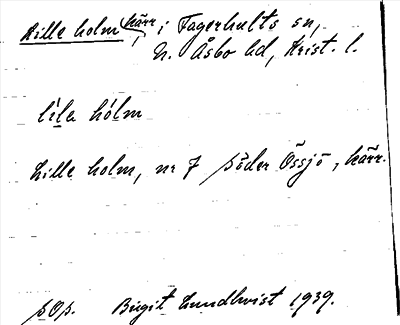 Lille holm, kärr, i Fagerhults sn,
N. Åsbo hd, Krist. l.
lìla hólm
Lille holm, nr 7 Söder Össjö, kärr.
Birgit Lundkvist 1939.